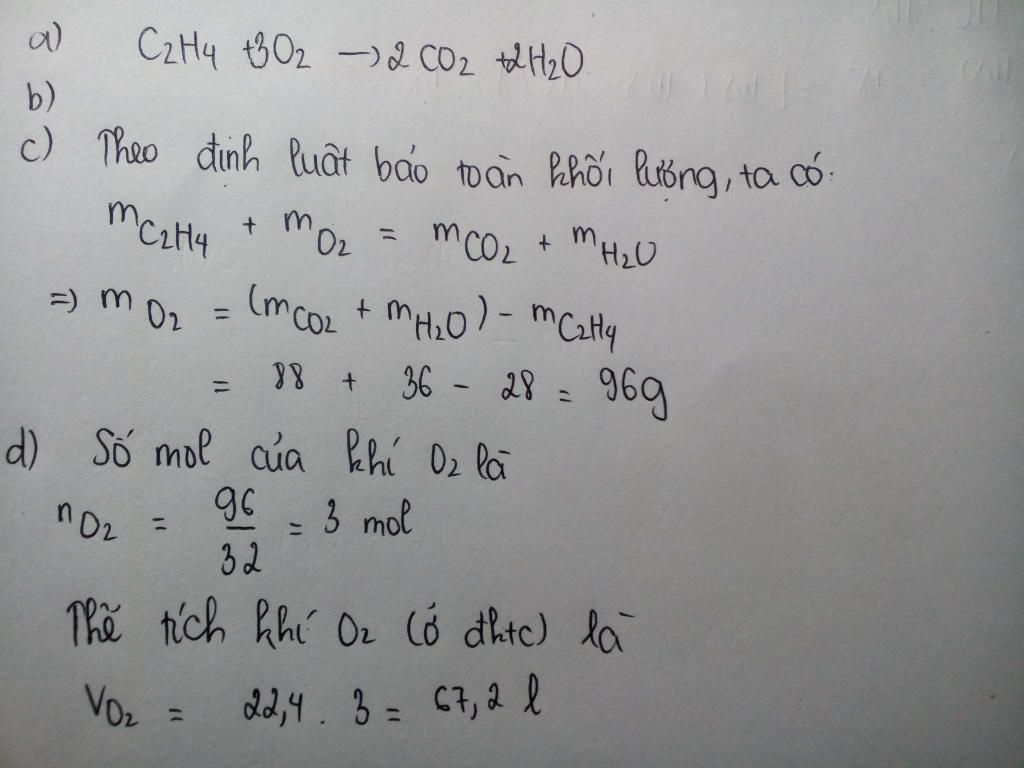 a) C2H4 + 3O2 → 2 CO2 + 2H2O
b)
c) Theo định luật bảo toàn khối lượng, ta có:
mC2H4 + mO2 = mCO2 + mH2O
=> mO2 = (mCO2 + mH2O) - mC2H4
= 88 + 36 - 28 = 96g
d) Số mol của khí O2 là
nO2 = 96/32 = 3 mol
Thể tích khí O2 (ở đktc) là
VO2 = 22,4 . 3 = 67,2 l